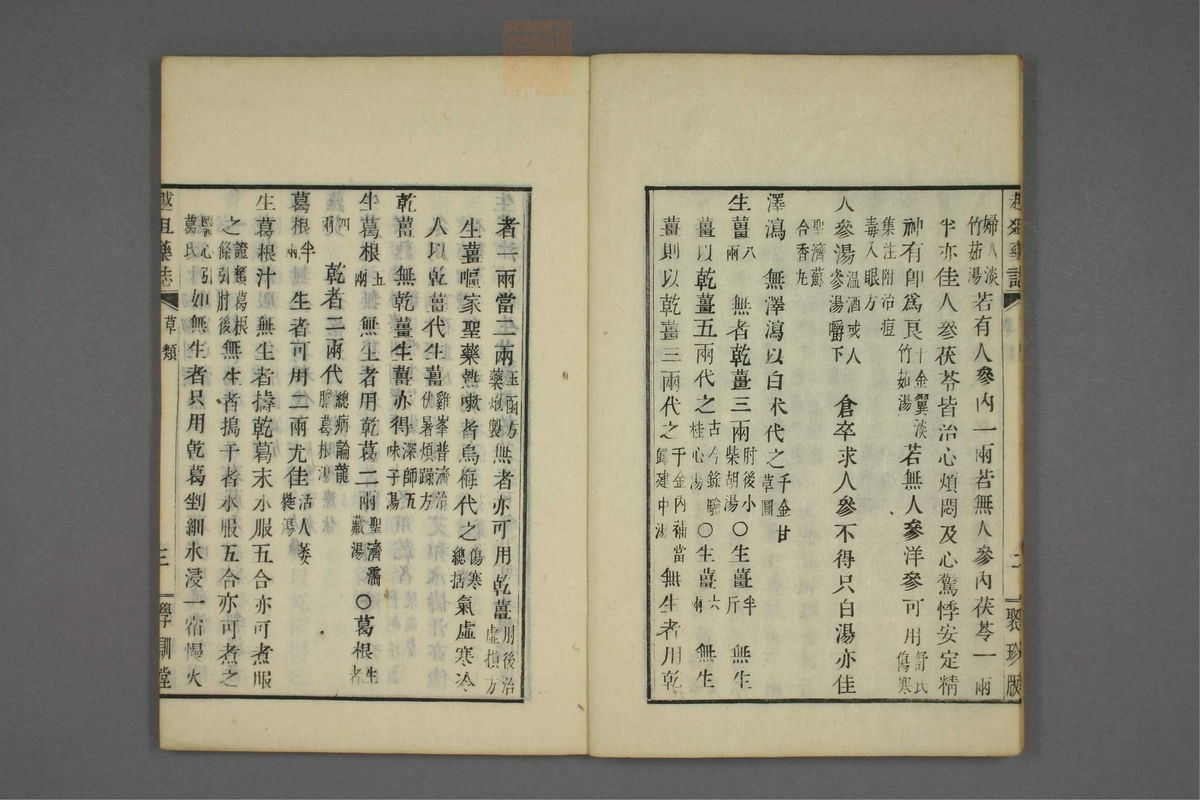 婦人淡竹茹湯若有人參內一兩若無人參內茯苓一兩
半亦佳人參茯苓皆治心煩悶及心驚悸安定精
神有卽爲良千金翼淡竹茹湯 若無人參洋參可用舒氏傷寒
集注附治痘毒入眼方
人參湯溫酒或人參湯嚼下 倉卒求人參不得只白湯亦佳
聖濟蘇合香丸
澤瀉 無澤瀉以白朮代之千金甘草圖
生薑八兩 無者乾薑三兩肘後小柴胡湯○生薑半斤 無生
薑以乾薑五兩代之古今錄驗桂心湯○生薑六兩 無生
薑則以乾薑三兩代之千金內補當歸建中湯 無生者用乾
聚珍版
者一兩當生二兩玉函方藥敖製無者亦可用乾薑用後治虛損方
生薑嘔家聖藥熱嗽者烏梅代之傷寒總括氣虛寒冷
人以乾薑代生薑雞峯普濟治伏暑煩躁方
乾薑 無乾薑生薑亦得深師五味子湯
生葛根五兩 無生者用乾葛二兩聖濟濡藏湯○葛根生者
四兩 乾者三兩代總病論龍膽葛根湯
葛根半兩 生者可用二兩尤佳活人葳蕤湯
生葛根汁 無生者擣乾葛末水服五合亦可煮服
之證類葛根條引肘後無生者搗干者水服五合亦可煮之
學心引葛氏如無生者只用乾葛剉細水浸一宿慢火
草類
三
學訓堂